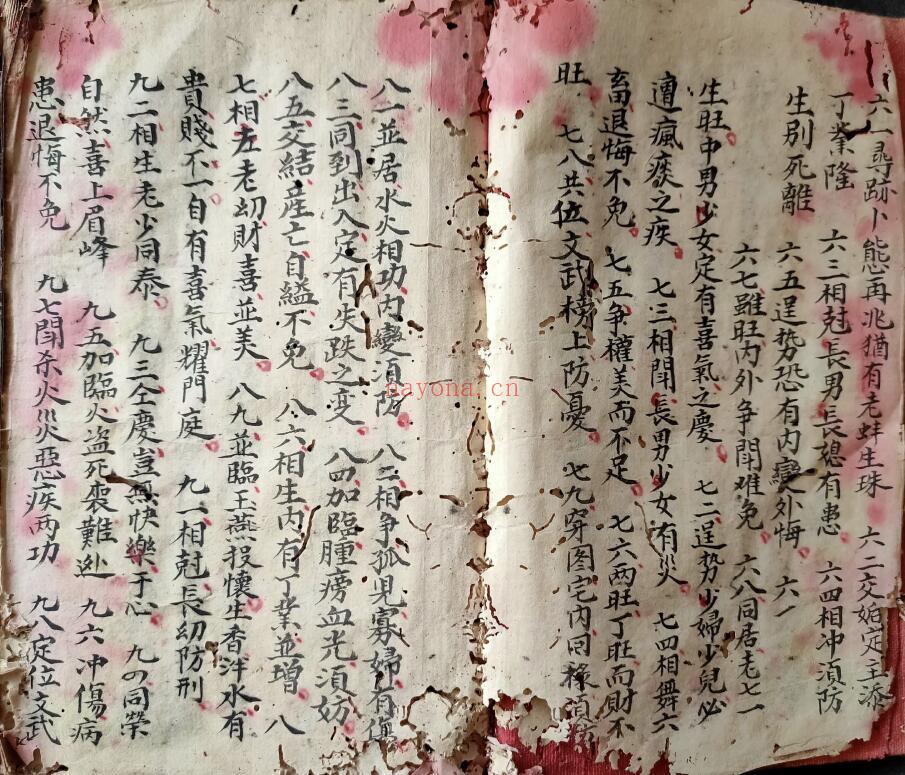 六一尋跡卜態再兆猶有老蚌生珠 六二交姤定主添
丁業隆 六三相尅長男長媳有患 六四相冲須防
生別死離 六五逞势恐有内變外悔 六
六七雖旺内外争閗难免 六八同居老七一
生旺中男少女定有喜氣之慶 七二逞势少婦少兒必
遭瘋痰之疾 七三相閗長男少女有災 七四相舞六
畜退悔不免 七五争權美而不足 七六两旺丁旺而財不
旺 七八共位文武榜上防憂 七九穿图宅内回禄須
八一並居水火相功内變須防 八二相争孤兒寡婦有
八三同到出入定有失跌之变 八四加臨腫癆血光須妨
八五交結産亡自縊不免 八六相生内有丁業並增 八
七相左老幼財喜並美 八九並臨玉燕投懷生香泮水有
貴賤不一自有喜氣耀門庭 九一相尅長幼防刑
九二相生老少同泰 九三仝慶豈無快樂于心 九の同榮
自然喜上眉峰 九五加臨火盗死喪難逃 九六冲傷病
患退悔不免 九七閗杀火災惡疾两功 九八定位文武
nayona.cn